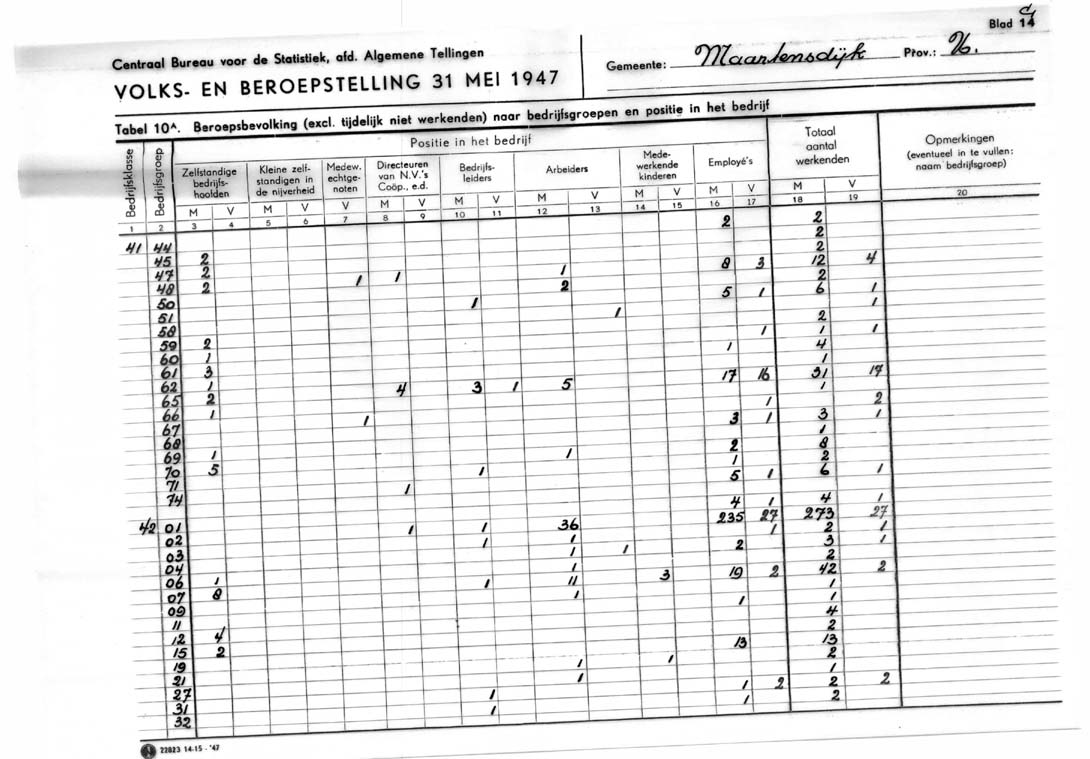 Blad 14
C4
Centraal Bureau voor de Statistiek, afd. Algemene Tellingen
VOLKS- EN BEROEPSTELLING 31 MEI 1947
Gemeente: Maartensdijk Prov.: U.
Tabel 10A. Beroepsbevolking (excl. tijdelijk niet werkenden) naar bedrijfsgroepen en positie in het bedrijf
Bedrijfsklasse
Bedrijfsgroep
Positie in het bedrijf
Zelfstandige bedrijfs-hoofden
Kleine zelf-standigen in de nijverheid
Medew. echtge-noten
Directeuren van N.V.'s Coöp., e.d.
Bedrijfs-leiders
Arbeiders
Mede-werkende kinderen
Employé's
Totaal aantal werkenden
Opmerkingen (eventueel in te vullen: naam bedrijfsgroep)
M V M V V M V M V M V M V M V M V
1 2 3 4 5 6 7 8 9 10 11 12 13 14 15 16 17 18 19 20
41 44 2 2
45 2 2
47 2 2
48 2 1 1 1 8 3 12 4
50 2 2
51 1 5 1 6 1
58 1 1
59 2 2
60 1 1 1 1
61 3 1 4
62 1 1
65 2 4 3 1 5 17 16 31 17
66 1 1
67 1 1 2
68 3 1 3 1
69 1 1
70 5 1 2 8
71 1 1 2
74 1 5 1 6 1
42 01 4 1 4 1
02 1 1 36 235 27 273 27
03 1 1 1 2 1
04 1 1 2 3 1
06 1 1 2
07 8 1 11 3 19 2 42 2
09 1 1
11 1 1
12 4 4
15 2 2
19 13 13
21 1 1 2
27 1 1
31 1 1 2 2 2
32 1 1 2
22823 14-15 - '47